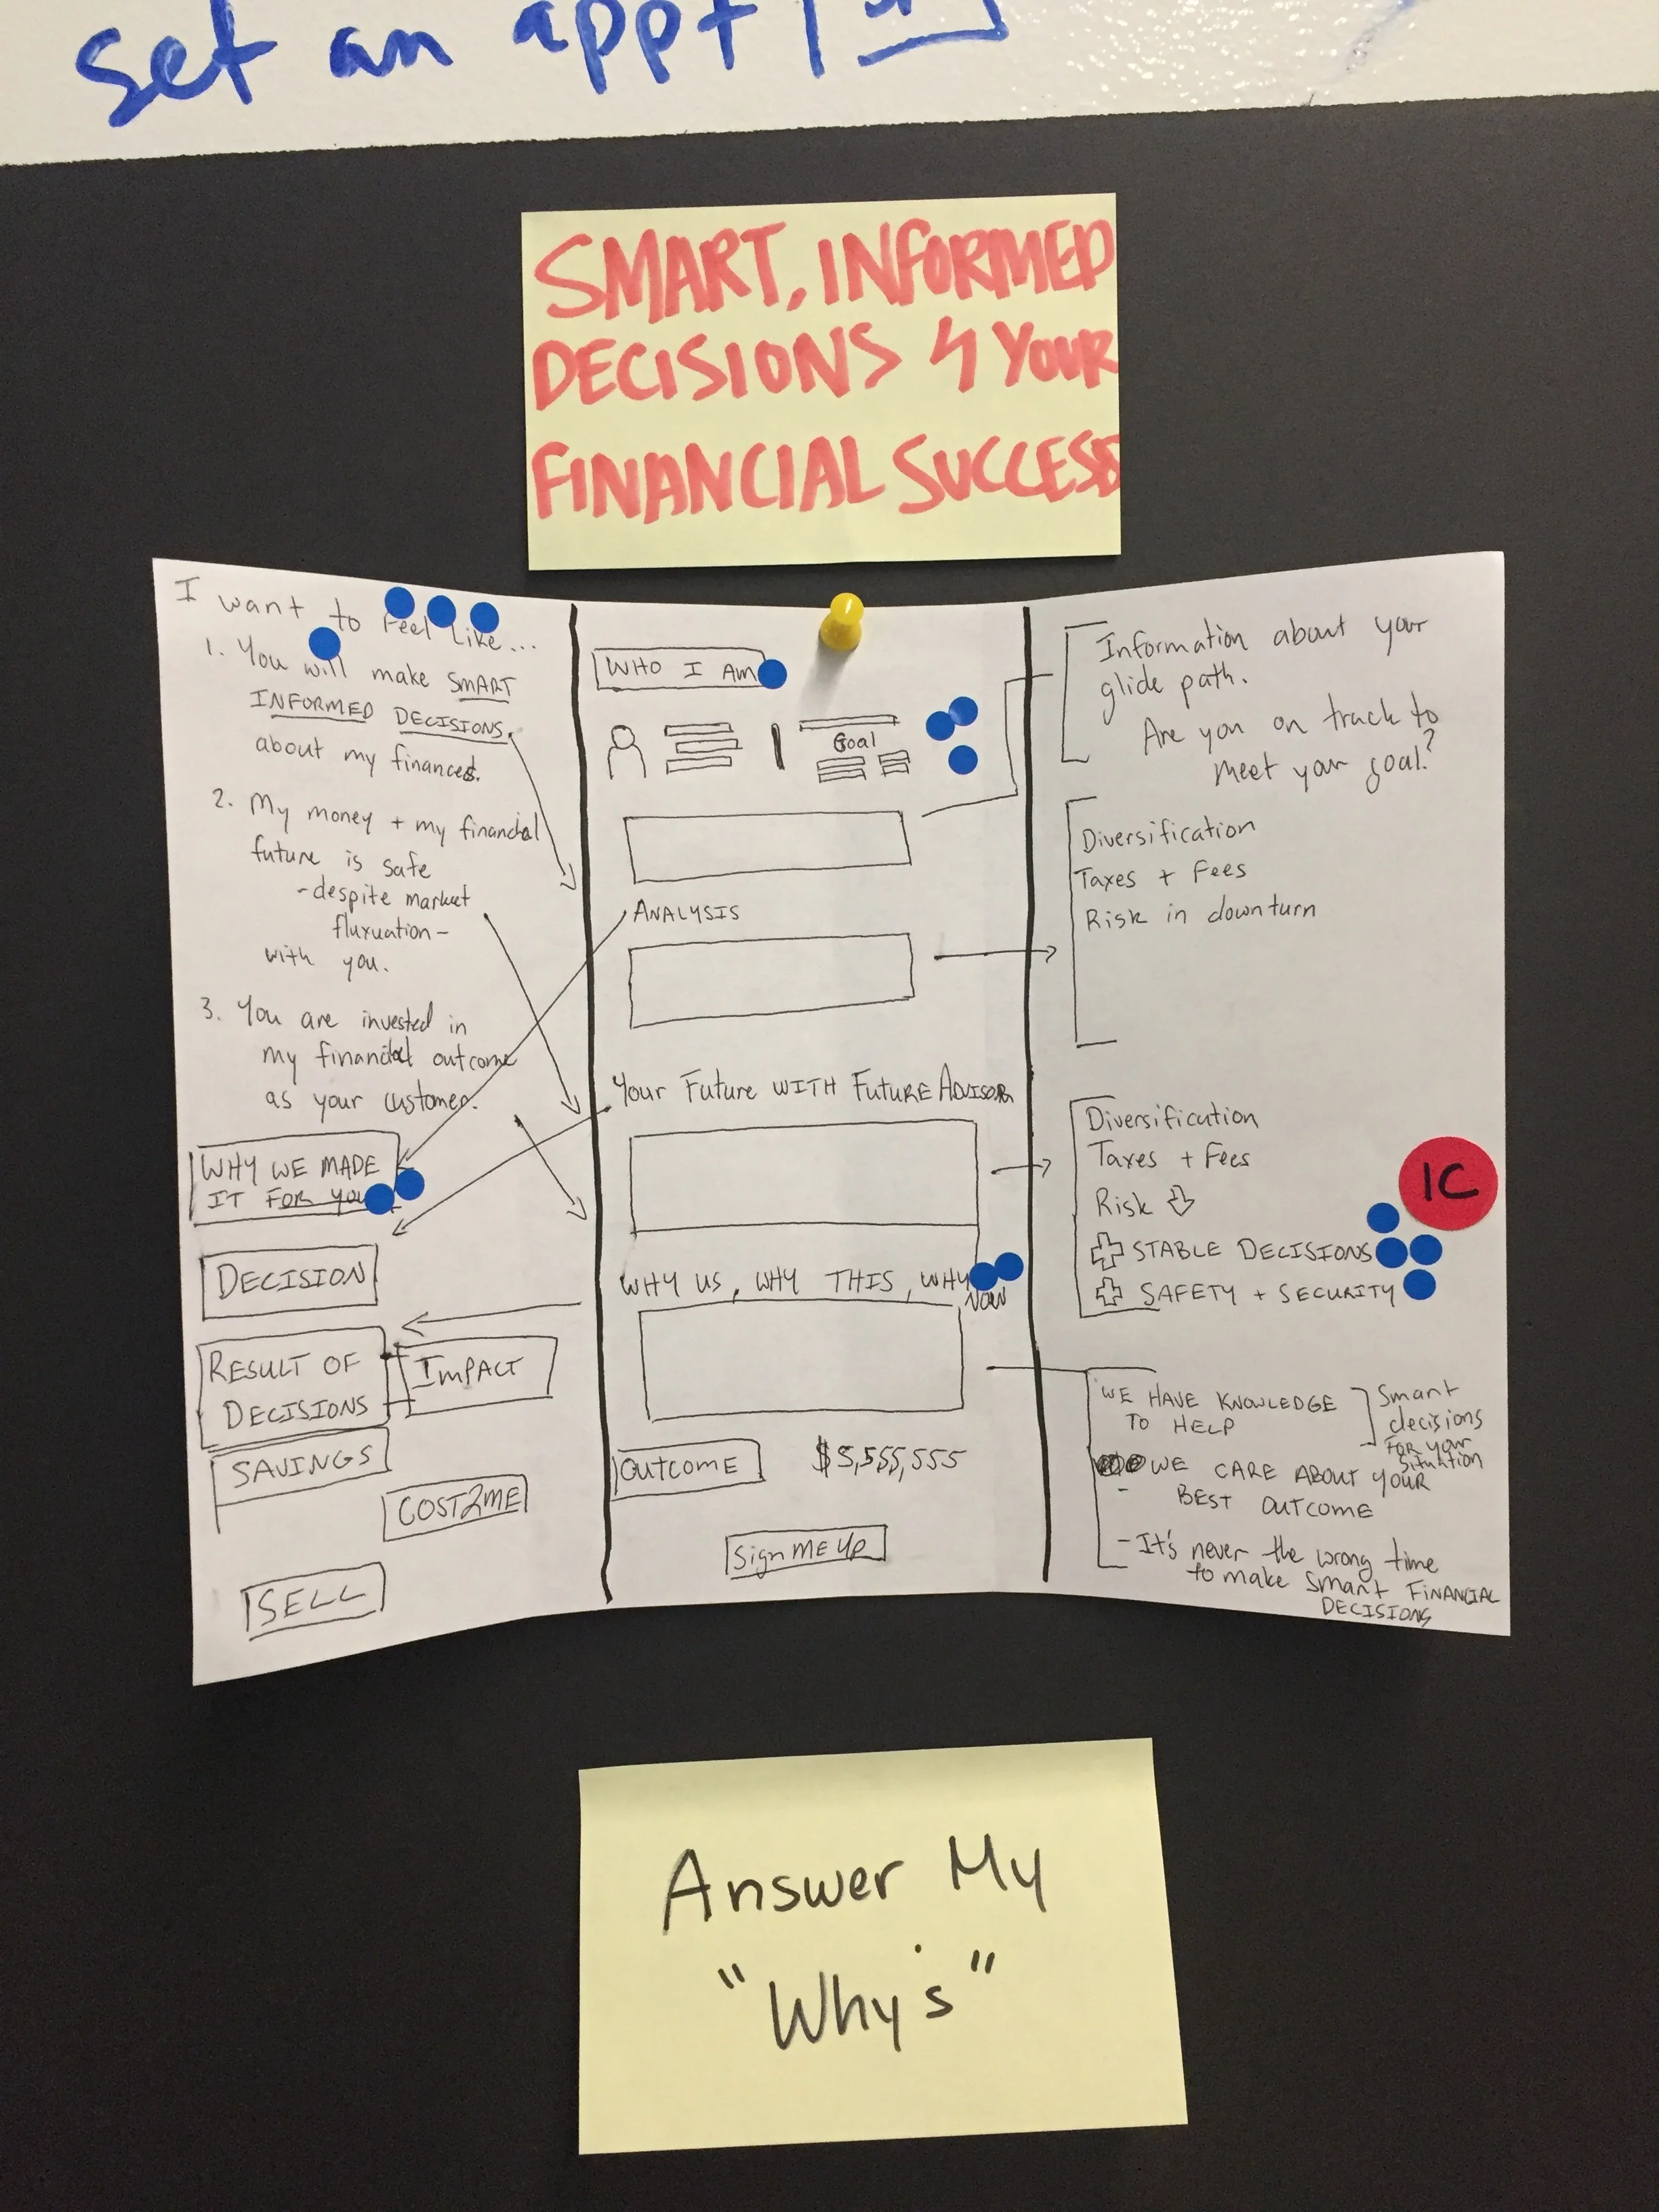 set an appt
SMART, INFORMED
DECISIONS 4 YOUR
FINANCIAL SUCCESS
I want to feel like...
1. You will make SMART
INFORMED DECISIONS
about my finances.
2. My money + my financial
future is safe
-despite market
fluxuation-
with you.
3. You are invested in
my financial outcome
as your customer.
WHY WE MADE
IT FOR YOU
DECISION
RESULT OF
DECISIONS
IMPACT
SAVINGS
COST2ME
SELL
WHO I AM
Goal
ANALYSIS
Your Future WITH FUTURE ADVISOR
WHY US, WHY THIS, WHY
NOW
OUTCOME $5,555,555
Sign ME UP
Information about your
glide path.
Are you on track to
meet your goal?
Diversification
Taxes + Fees
Risk in downturn
Diversification
Taxes + Fees
Risk
STABLE DECISIONS
SAFETY + SECURITY
IC
WE HAVE KNOWLEDGE
TO HELP
Smart
decisions
FOR your
situation
WE CARE ABOUT YOUR
BEST OUTCOME
- It's never the wrong time
to make Smart FINANCIAL
DECISIONS
Answer My
"Why's"